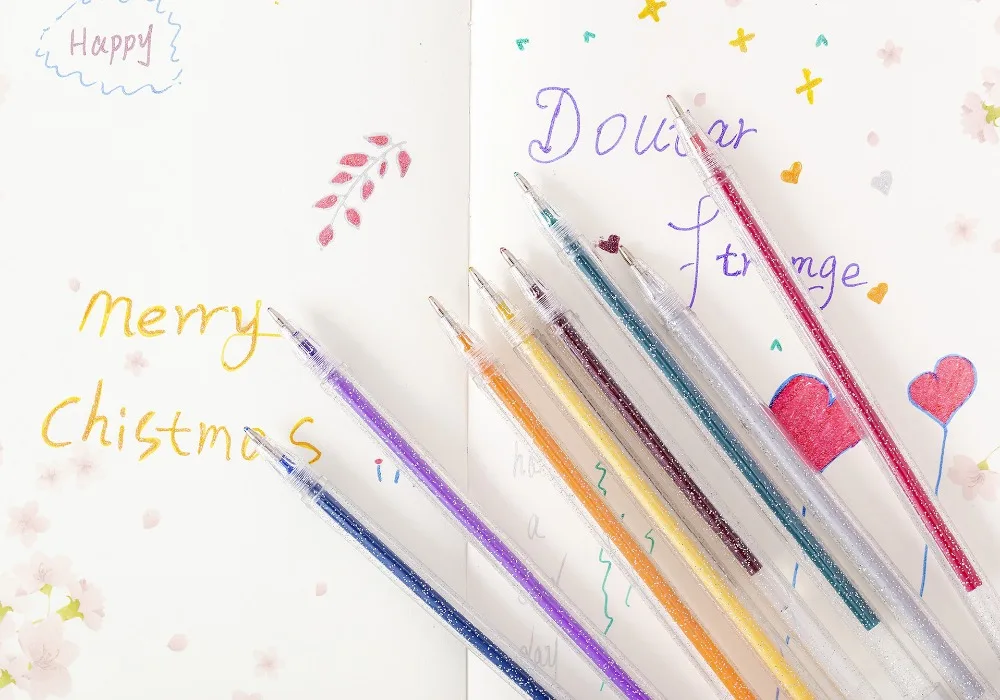 Happy
Merry
Chistmas
Strange
a
day